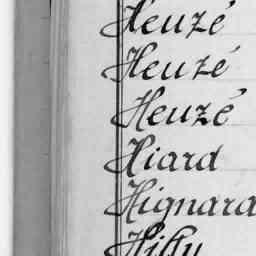 Heuzé
Heuzé
Heuzé
Hiard
Hignard